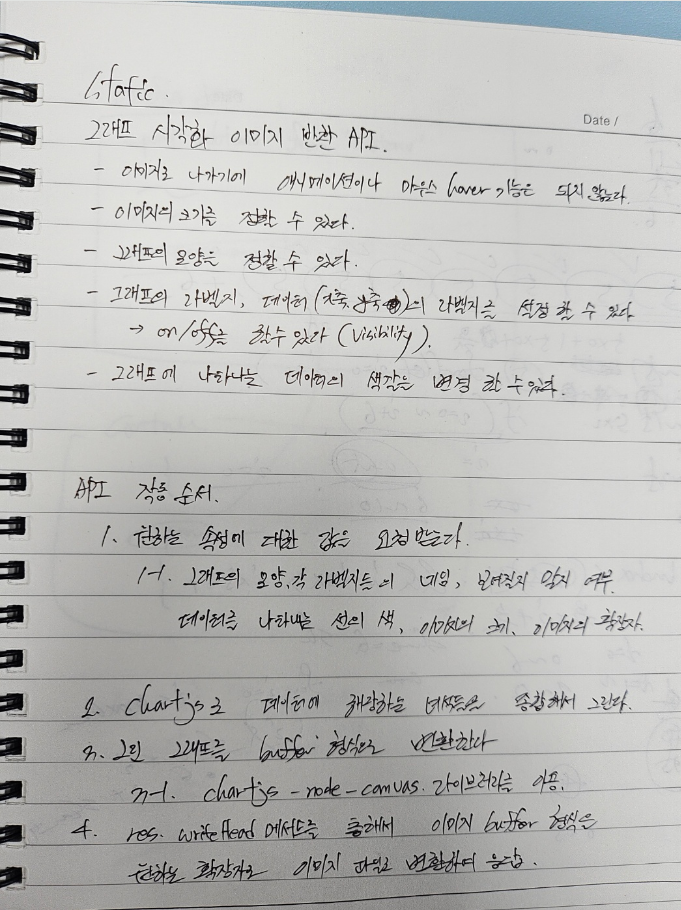 Static.
Date /
그래프 시각화 이미지 반환 API.
- 이미지로 나가기에 애니메이션이나 마우스 hover 기능은 되지 않는다.
- 이미지의 크기를 정할 수 있다.
- 그래프의 모양을 정할 수 있다.
- 그래프의 라벨지, 데이터(x축, y축)의 라벨지를 설정 할 수 있다
→ on/off를 할 수 있다 (visibility).
- 그래프에 나타나는 데이터의 색깔을 변경 할 수 있다.
API 작동 순서.
1. 원하는 속성에 대한 값을 요청 받는다.
1-1. 그래프의 모양, 각 라벨지들의 네임, 보여질지 말지 여부.
데이터를 나타내는 선의 색, 이미지의 크기, 이미지의 확장자.
2. chartjs로 데이터에 해당하는 녀석들을 종합해서 그린다.
3. 그린 그래프를 buffer 형식으로 변환한다
3-1. chartjs-node-canvas. 라이브러리를 이용.
4. res. writeHead 메서드를 통해서 이미지 buffer 형식을
원하는 확장자로 이미지 파일로 변환하여 응답.